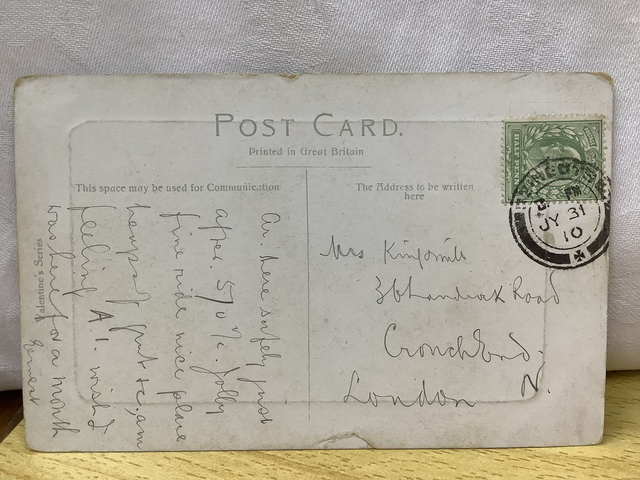 POST CARD.
Printed in Great Britain
This space may be used for Communication
The Address to be written
here
Valentine's Series
Ar. here safely just
after 5/0
Jolly
fine ride nice place
feeling A1. wish I
was here for a month
Ernest
Mrs Kingsmill
36 Road
Crouch End.
London N.
JY 31
10